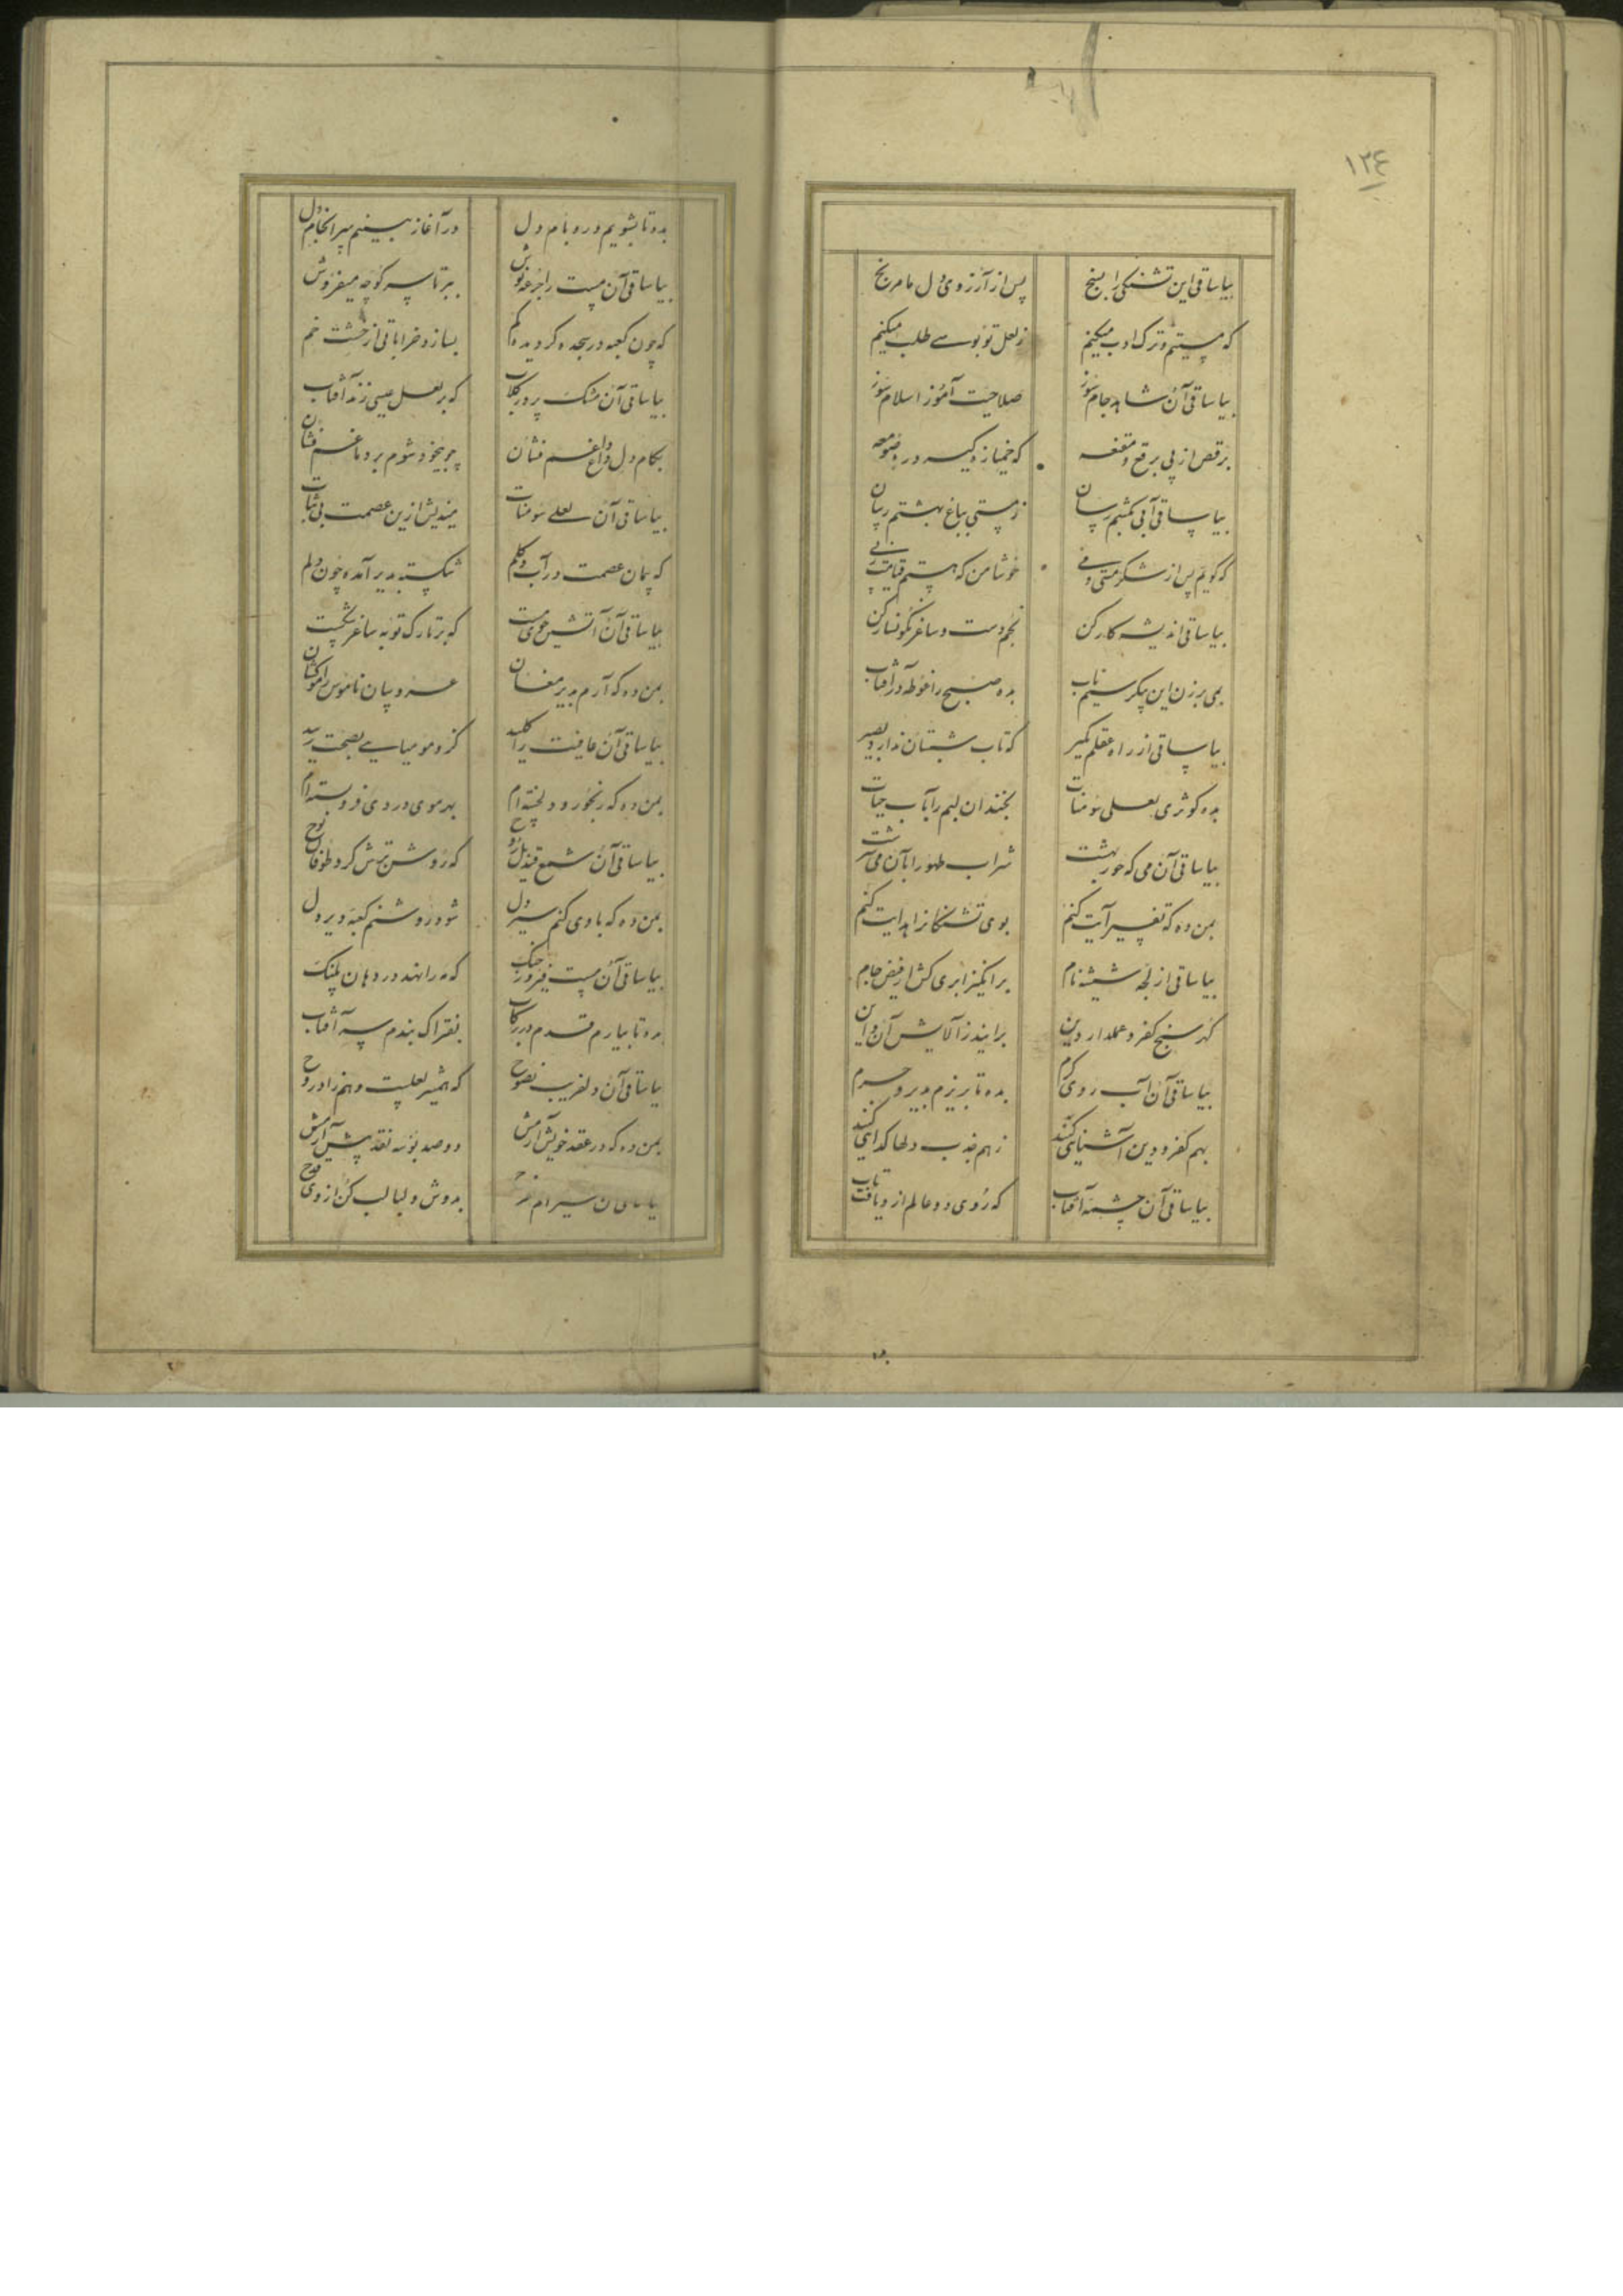 ۱۳۴
بیا ساقی این تشنگی را بسنج پس از آرزوی دل ما مرنج
که مستیم و ترک ادب میکنم ز لعل تو بوسے طلب میکنم
بیا ساقی آن شاهد جام سوز صلاحیت آموز اسلام سوز
برقص از پی برقع و مقنعه که خمیازه گیسه در صومعه
بیا ساقی آبی بکشتم رسان ز مستی بباغ بهشتم رسان
که گویم پس از شکر مستی و می خوشا من که هستم قیامت
بیا ساقی اندیشه کار کن بخم دست و ساغر نگونسار کن
بمی برزن این پیکر سیم ناب بده صبح را غوطه در آفتاب
بیا ساقی از راه عقلم مگیر که تاب شبستان ندارد بصیر
بده کوثری لعلی سومنات بخندان لبم را بآب حیات
بیا ساقی آن می که حور بهشت شراب طهور را بآن می
بمن ده که تفسیر آیت کنم بوی تشنگانرا هدایت کنم
بیا ساقی از لجه شیشه نام برانگیز ابری کش از فیض جام
گهر سنج کفر و عملدار دین برآیند ز آلایش آن و این
بیا ساقی آن آب روی کرم بده تا بریزم بدیر و حرم
بهم کفر و دین آشنایی کنند ز هم جذب دلها گدایی کنند
بیا ساقی آن چشمه آفتاب که روی دو عالم ازو یافت تاب
بده تا بشویم در و بام دل در آغاز بینم سرانجام دل
بیا ساقی آن مست را جرعه نوش ببر تا سر کوچه میفروش
که چون کعبه در سجده گردیده گم بسازد خراباتی از خشت خم
بیا ساقی آن مشک پرور گلاب که بر لعل عیسی زند آفتاب
بکام دل داغ غم فشان چو بیخود شوم بر دماغم فشان
بیا ساقی آن لعلے سومنات میندیش ازین عصمت بی ثبات
که پیمان عصمت در آب و گلم شکسته بدیر آمده چون دلم
بیا ساقی آن آتشین خوی مست که بر تارک توبه ساغر شکست
بمن ده که آرم بدیر مغان عروسان ناموس را موکشان
بیا ساقی آن عافیت را کلید کزو مومیایے بصحت رسید
بمن ده که رنجور و دلخسته‌ام بهر موی دردی فروبسته‌ام
بیا ساقی آن شمع قندیل روح که روشن ترش کرد طوفان نوح
بمن ده که با وی کنم سیر دل شود روشنم کعبه و دیر دل
بیا ساقی آن مست فیروز جنگ که مه را نهد در دهان پلنگ
بده تا بیارم قدم در رکاب بفتراک بندم سر آفتاب
بیا ساقی آن دلفریب نصوح که همشیر لعلیست و همزاد روح
بمن ده که در عقد خویش آرمش دو صد بوسه نقد پیش آرمش
بدوش و لبالب کن از وی قدح